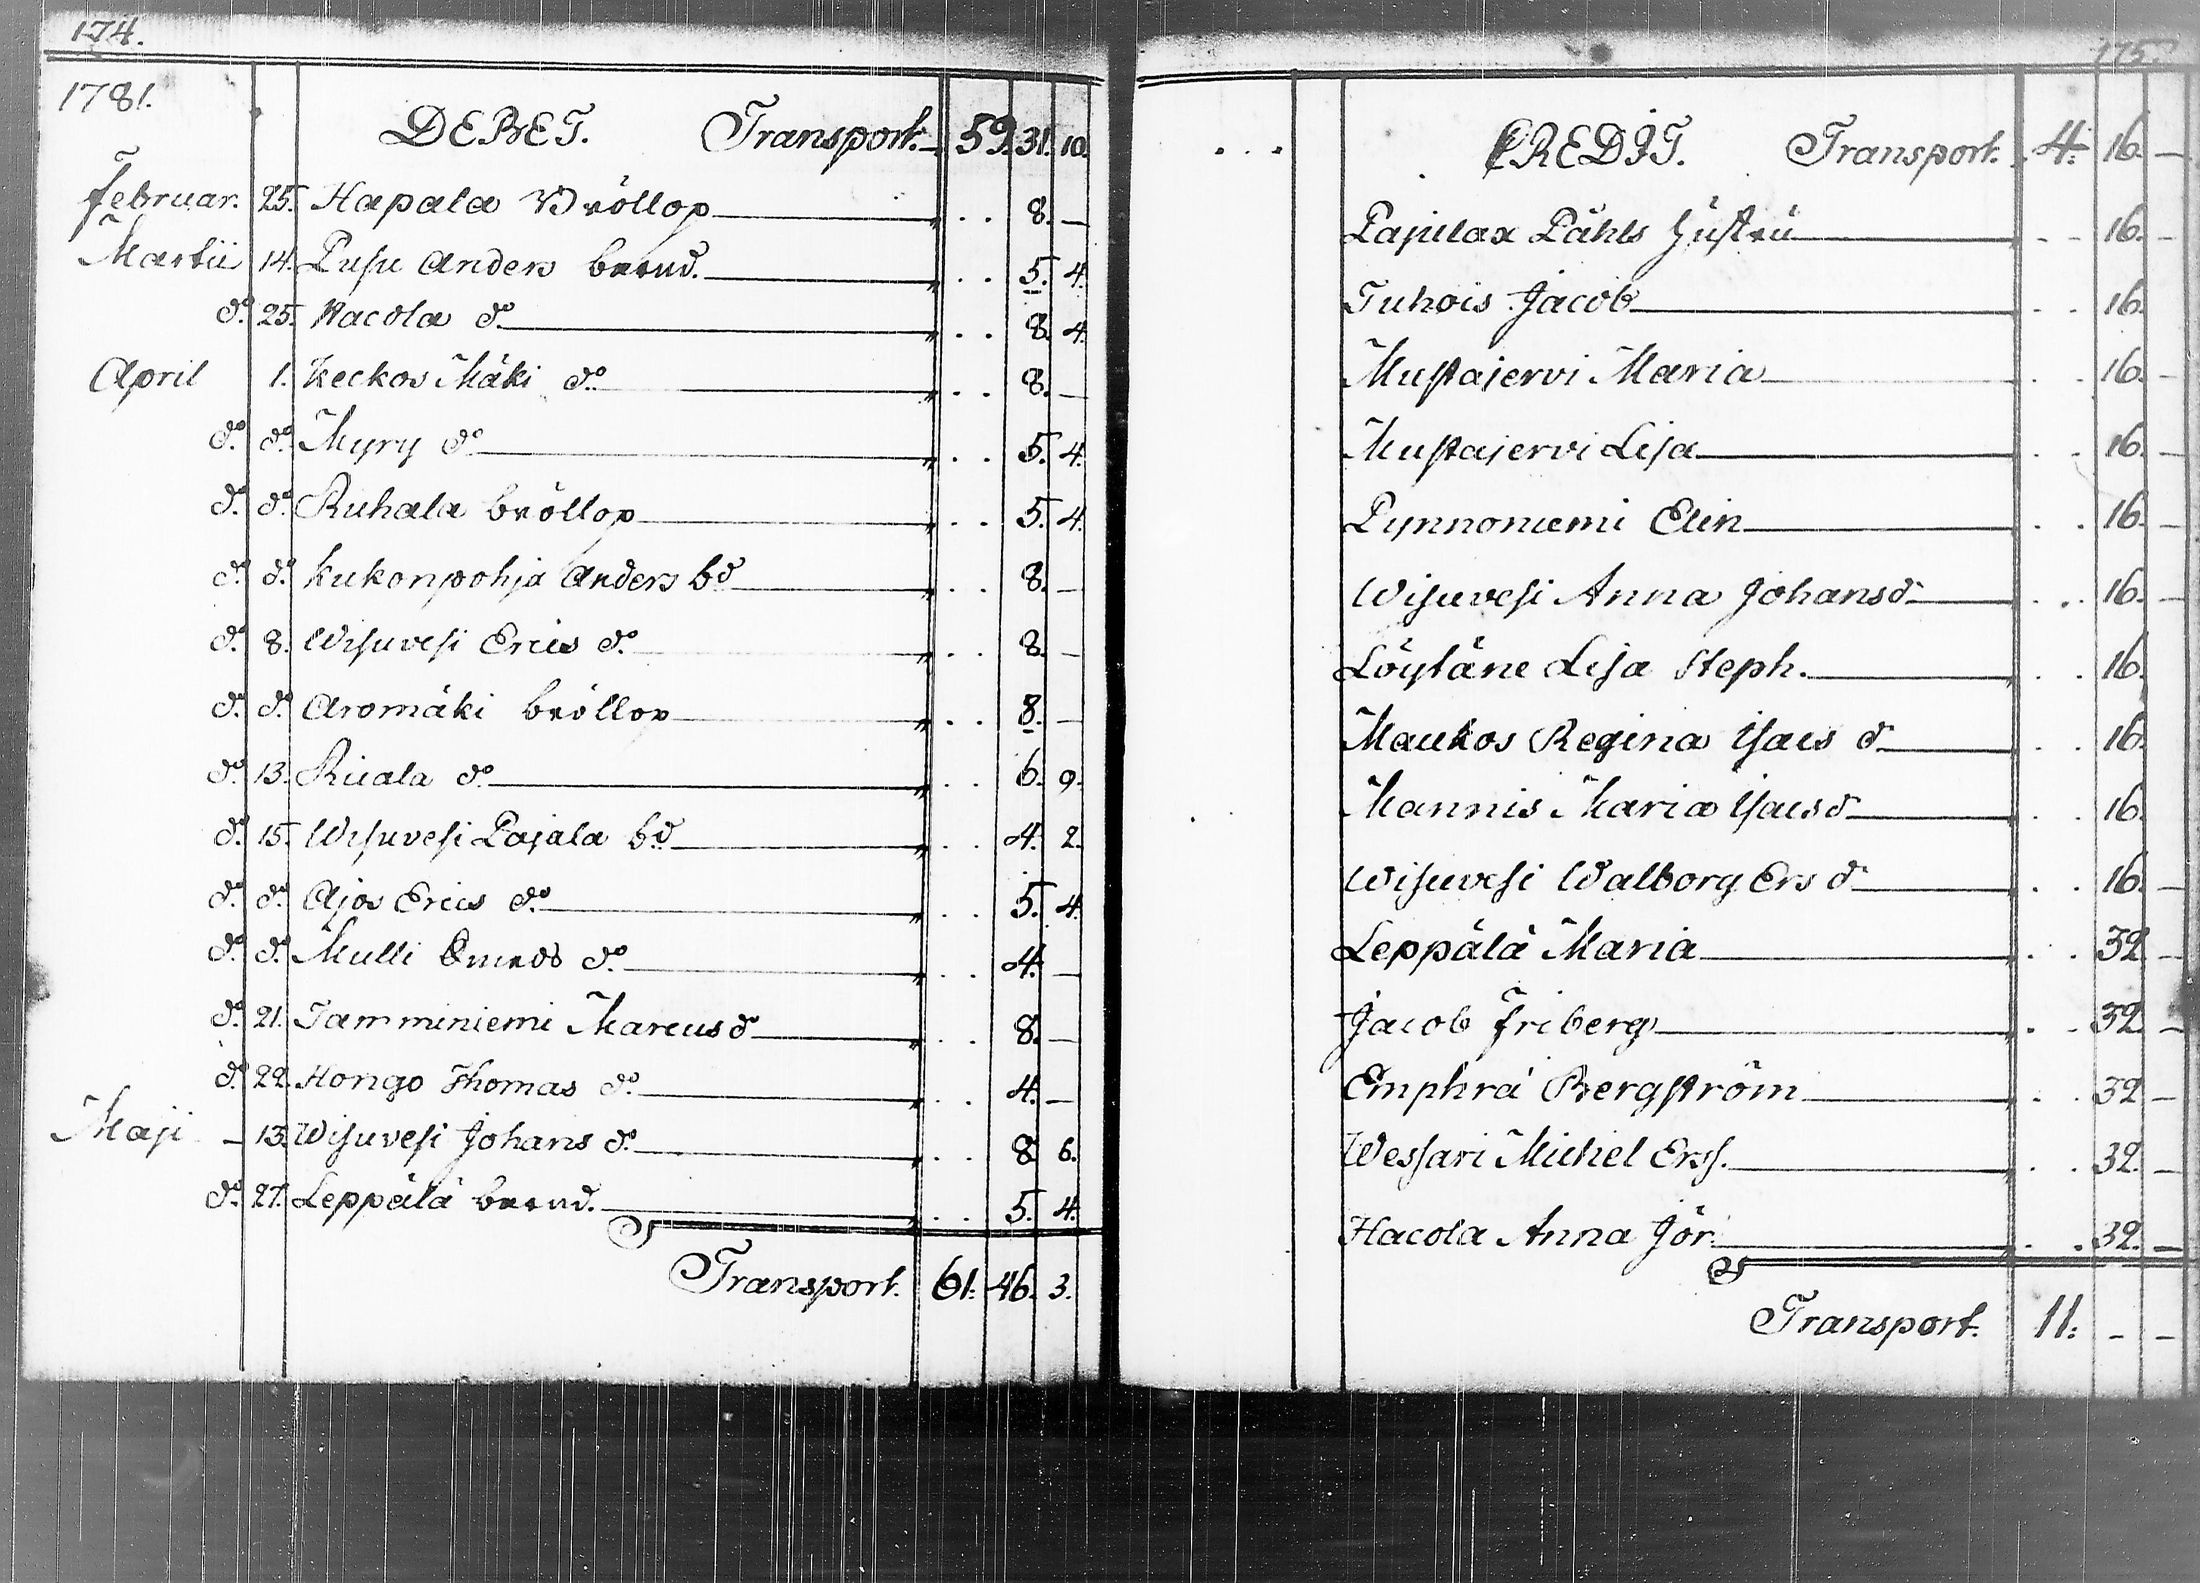 174.
1781. DEBET. Transport. 59. 31. 10.
Februar. 25. Hapala Bröllop 8. —
Martii 14. Pusu Anders barnd. 5. 4.
do 25. Hacola do 8. 4.
April 1. Keckos Mäki do 8. —
do do Myry do 5. 4.
do do Ruhala bröllop 5. 4.
do do Kukonpohja Anders bd 8. —
do 8. Wisuvesi Erics do 8. —
do do Aromäki bröllop 8. —
do 13. Riiala do 6. 9.
do 15. Wisuvesi Pajala bd 4. 2.
do do Ajos Erics do 5. 4.
do do Mulli do 4. —
do 21. Tamminiemi Marcus do 8. —
do 22. Hongo Thomas do 4. —
Maji — 13. Wisuvesi Johans do 8. 6.
do 27. Leppälä barnd. 5. 4.
Transport. 61. 46. 3.
175.
CREDIT. Transport. 4. 16. —
Pajulax Påhls Hustru 16. —
Tuhois Jacob 16. —
Mustajervi Maria 16. —
Mustajervi Lisa 16. —
Pynnoniemi Elin 16. —
Wisuvesi Anna Johansd 16. —
Löytäne Lisa Steph. 16.
Maukos Regina Isacs d 16.
Mannis Maria Isacs d 16.
Wisuvesi Walborg Ers d 16. —
Leppälä Maria 32 —
Jacob Friberg 32 —
Emphra Bergström 32 —
Wessari Michel Erss. 32. —
Hacola Anna Jör. 32. —
Transport. 11. — —